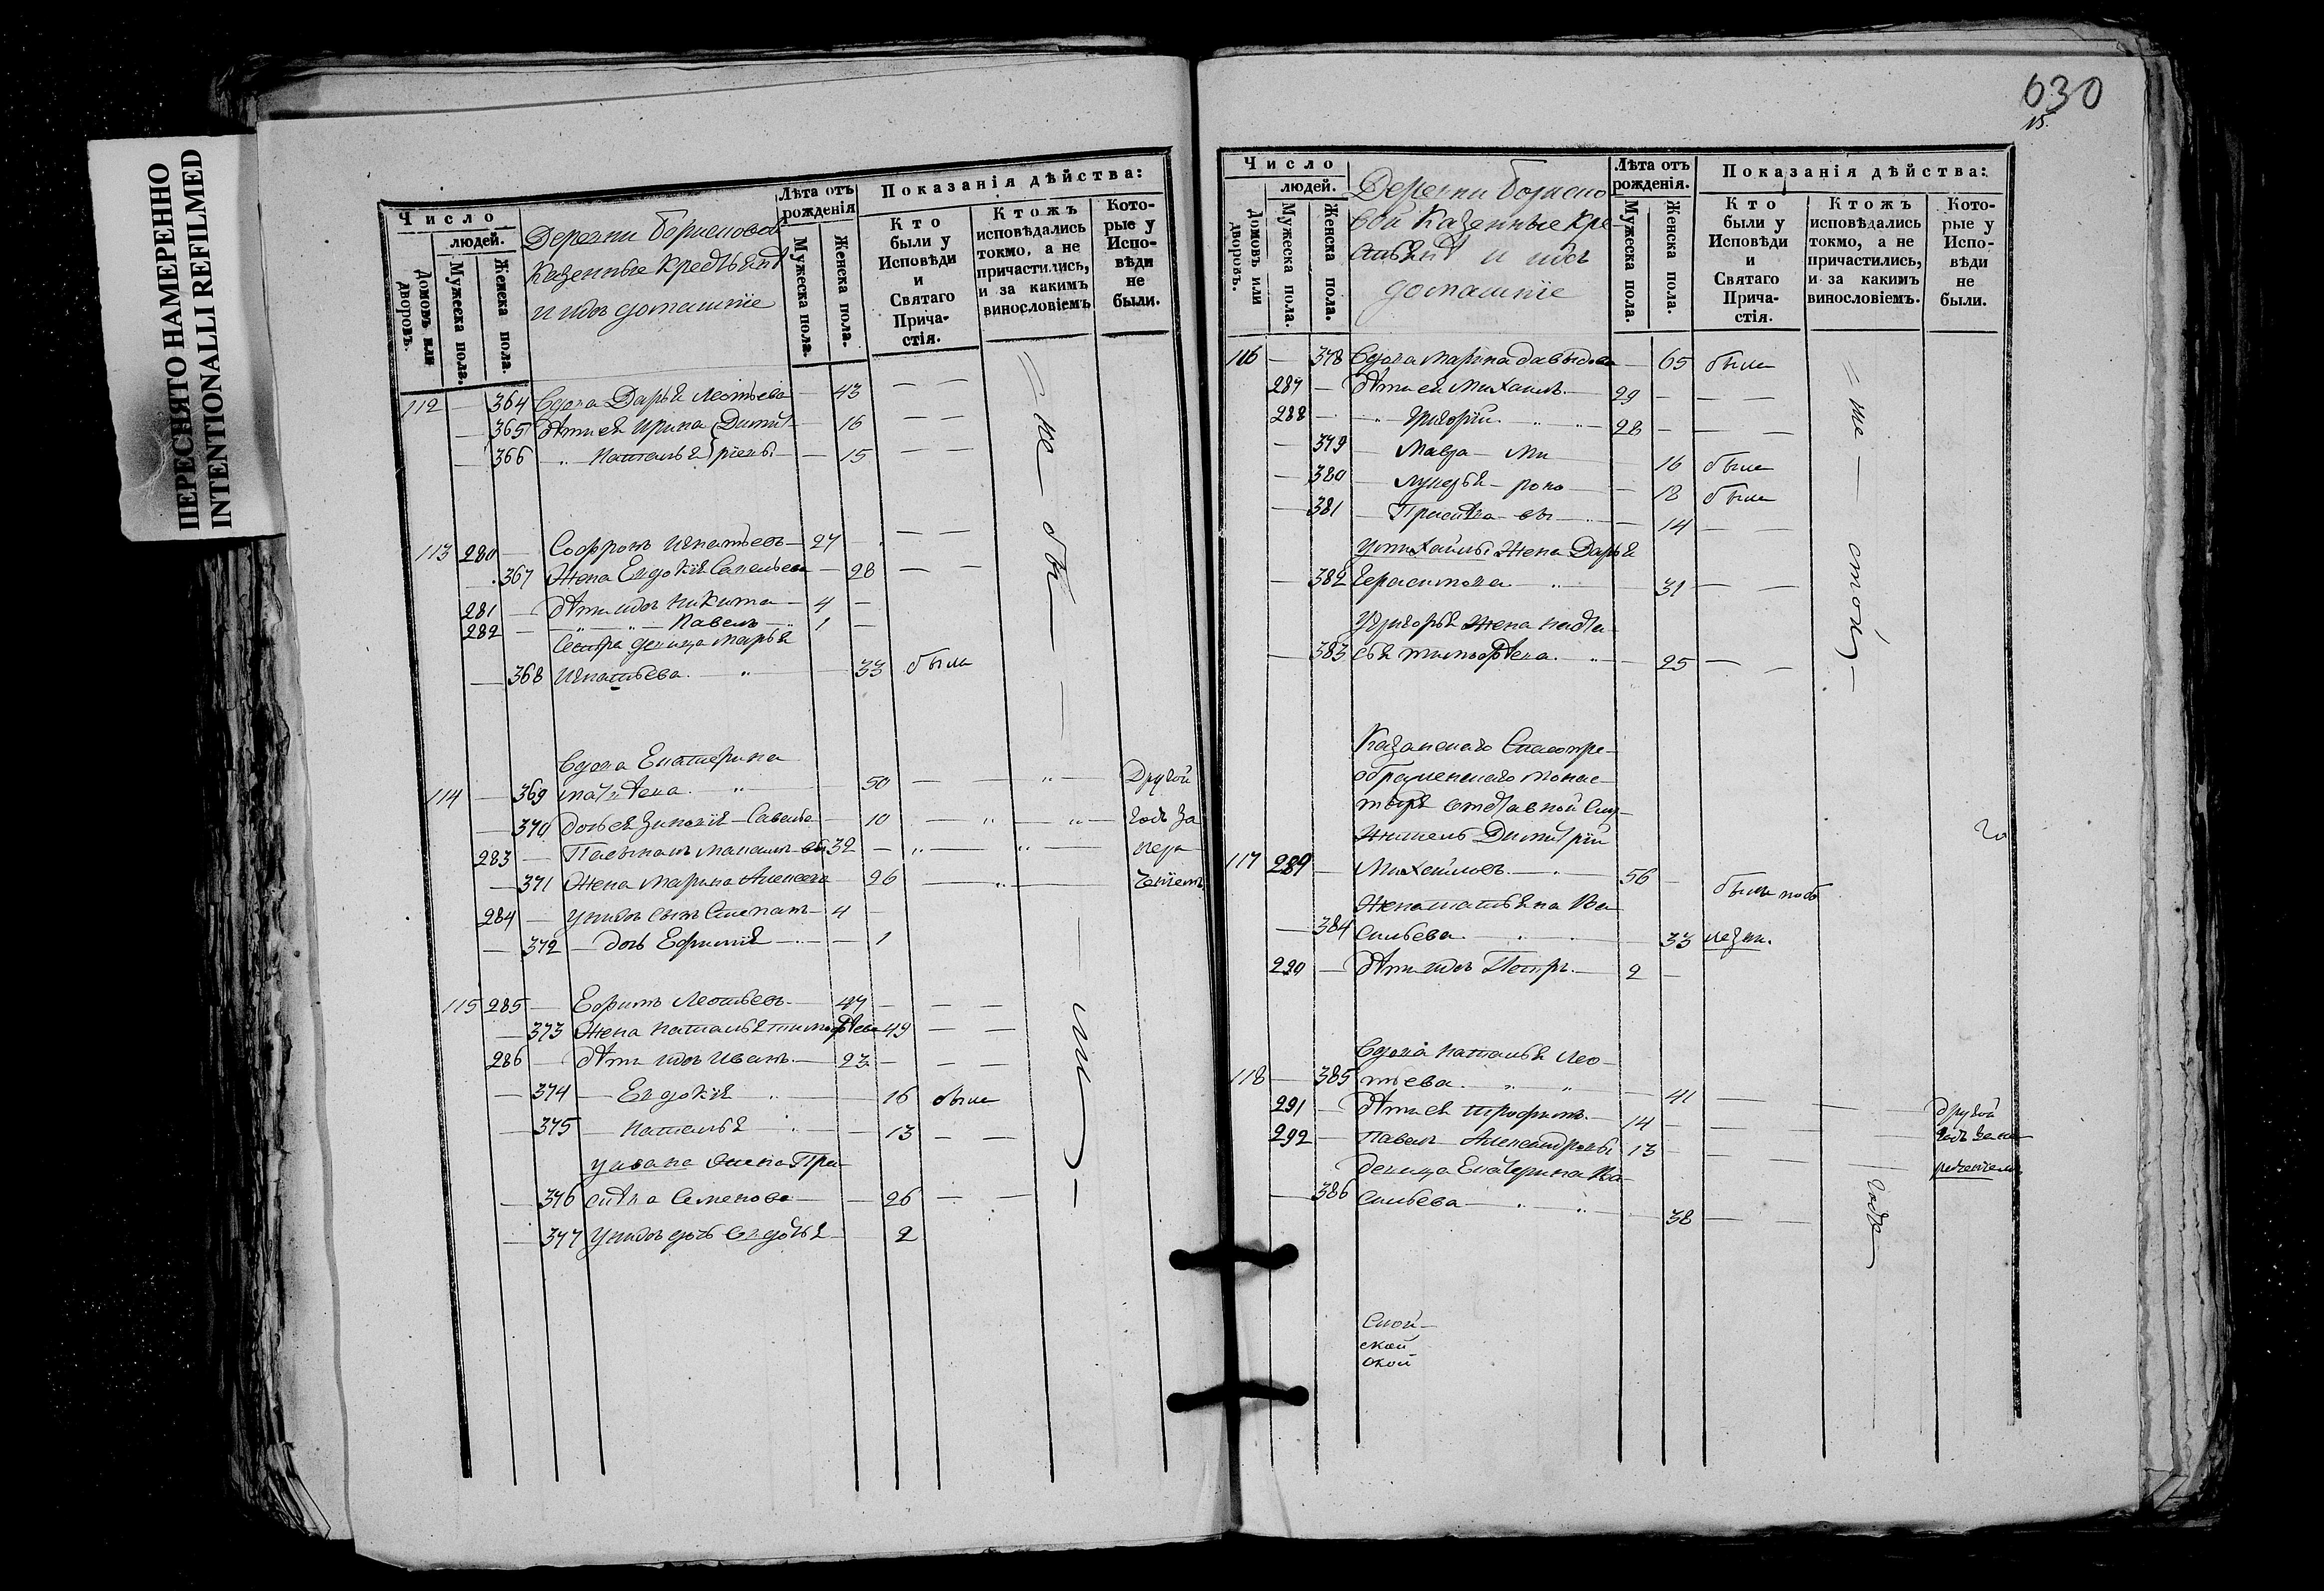 ПЕРЕСНЯТО НАМЕРЕННО
INTENTIONALLI REFILMED
Число
людей.
Домовъ или дворовъ.
Мужеска пола.
Женска пола.
Деревни Борисовой
Казенные Крестьянѣ
и ихъ домашніе
Лѣта отъ рожденія
Мужеска пола.
Женска пола.
Показанія дѣйства:
Кто были у Исповѣди и Святаго Прича-стія.
Ктожъ исповѣдались токмо, а не причастились, и за какимъ винословіемъ
Кото-рые у Испо-вѣди не были.
112 — 364 Вдова Дарья Леонтьева — 43 — —
— 365 Дѣти ея Ирина Дмит — 16 — —
— 366 — Наталья ріевы — 15 — —
113 280 — Софронъ Игнатьевъ — 27 — — —
— 367 Жена Евдокія Савельева — 28 — —
281 — Дѣти ихъ Никита — 4 —
282 — Павелъ 1 —
Сестра девица Марья
— 368 Игнатьева — 33 были
Вдова Екатерина
114 — 369 50 — — Другой
— 370 дочь ея Зиновія Савельева 10 — — годъ за
283 — 32 — — —
— 371 Жена Марина Алексеева 26 — —
284 — у нихъ сынъ Степанъ — 4 —
— 372 — дочь Ефимія — 1
115 285 — Ефимъ Леонтьевъ — 47 — — —
— 373 Жена Наталья Тимофѣева 49 — —
286 — Дѣти ихъ Иванъ — 23 — — —
— 374 — Евдокія 16 были
— 375 — Наталья — 13 — —
у Ивана жена Пра
— 376 сковья Семенова — 26 — —
— 377 у нихъ дочь Евдокья 2
630
15.
Число
людей.
Домовъ или дворовъ.
Мужеска пола.
Женска пола.
Деревни Борисо
вой Казенные Кре
стьянѣ и ихъ
домашніе
Лѣта отъ рожденія.
Мужеска пола.
Женска пола.
Показанія дѣйства:
Кто были у Исповѣди и Святаго Прича-стія.
Ктожъ исповѣдались токмо, а не причастились, и за какимъ винословіемъ.
Кото-рые у Испо-вѣди не были.
116 — 378 Вдова Марина Давыдова — 65 были
287 — Дѣти ея Михаилъ — 29 — — —
288 — Григорій — 28 — — —
— 379 Мавра — Ми 16 были
— 380 Лукерья — роно 18 были
— 381 — вы — 14 — —
у Михайлы Жена Дарья
— 382 Герасимова — 31 — —
у Григорья Жена Наста
— 383 сья Тимофѣева — 25 — —
Казанскаго Спасопре
ображенскаго Монас
тыря отставной Слу
житель Дмитрій
117 289 — Михайловъ — 56 — были
Жена Татьяна Ва
— 384 сильева — 33
290 — Дѣти ихъ Петръ — 2 —
Вдова Наталья Лео
118 — 385 нтьева — 41 — — Другой
291 — Дѣти ея Трофимъ — 14 — — — годъ
292 — Павелъ — Александровы 13 — — —
девица Екатерина Ва
— 386 сильева — 38 — —